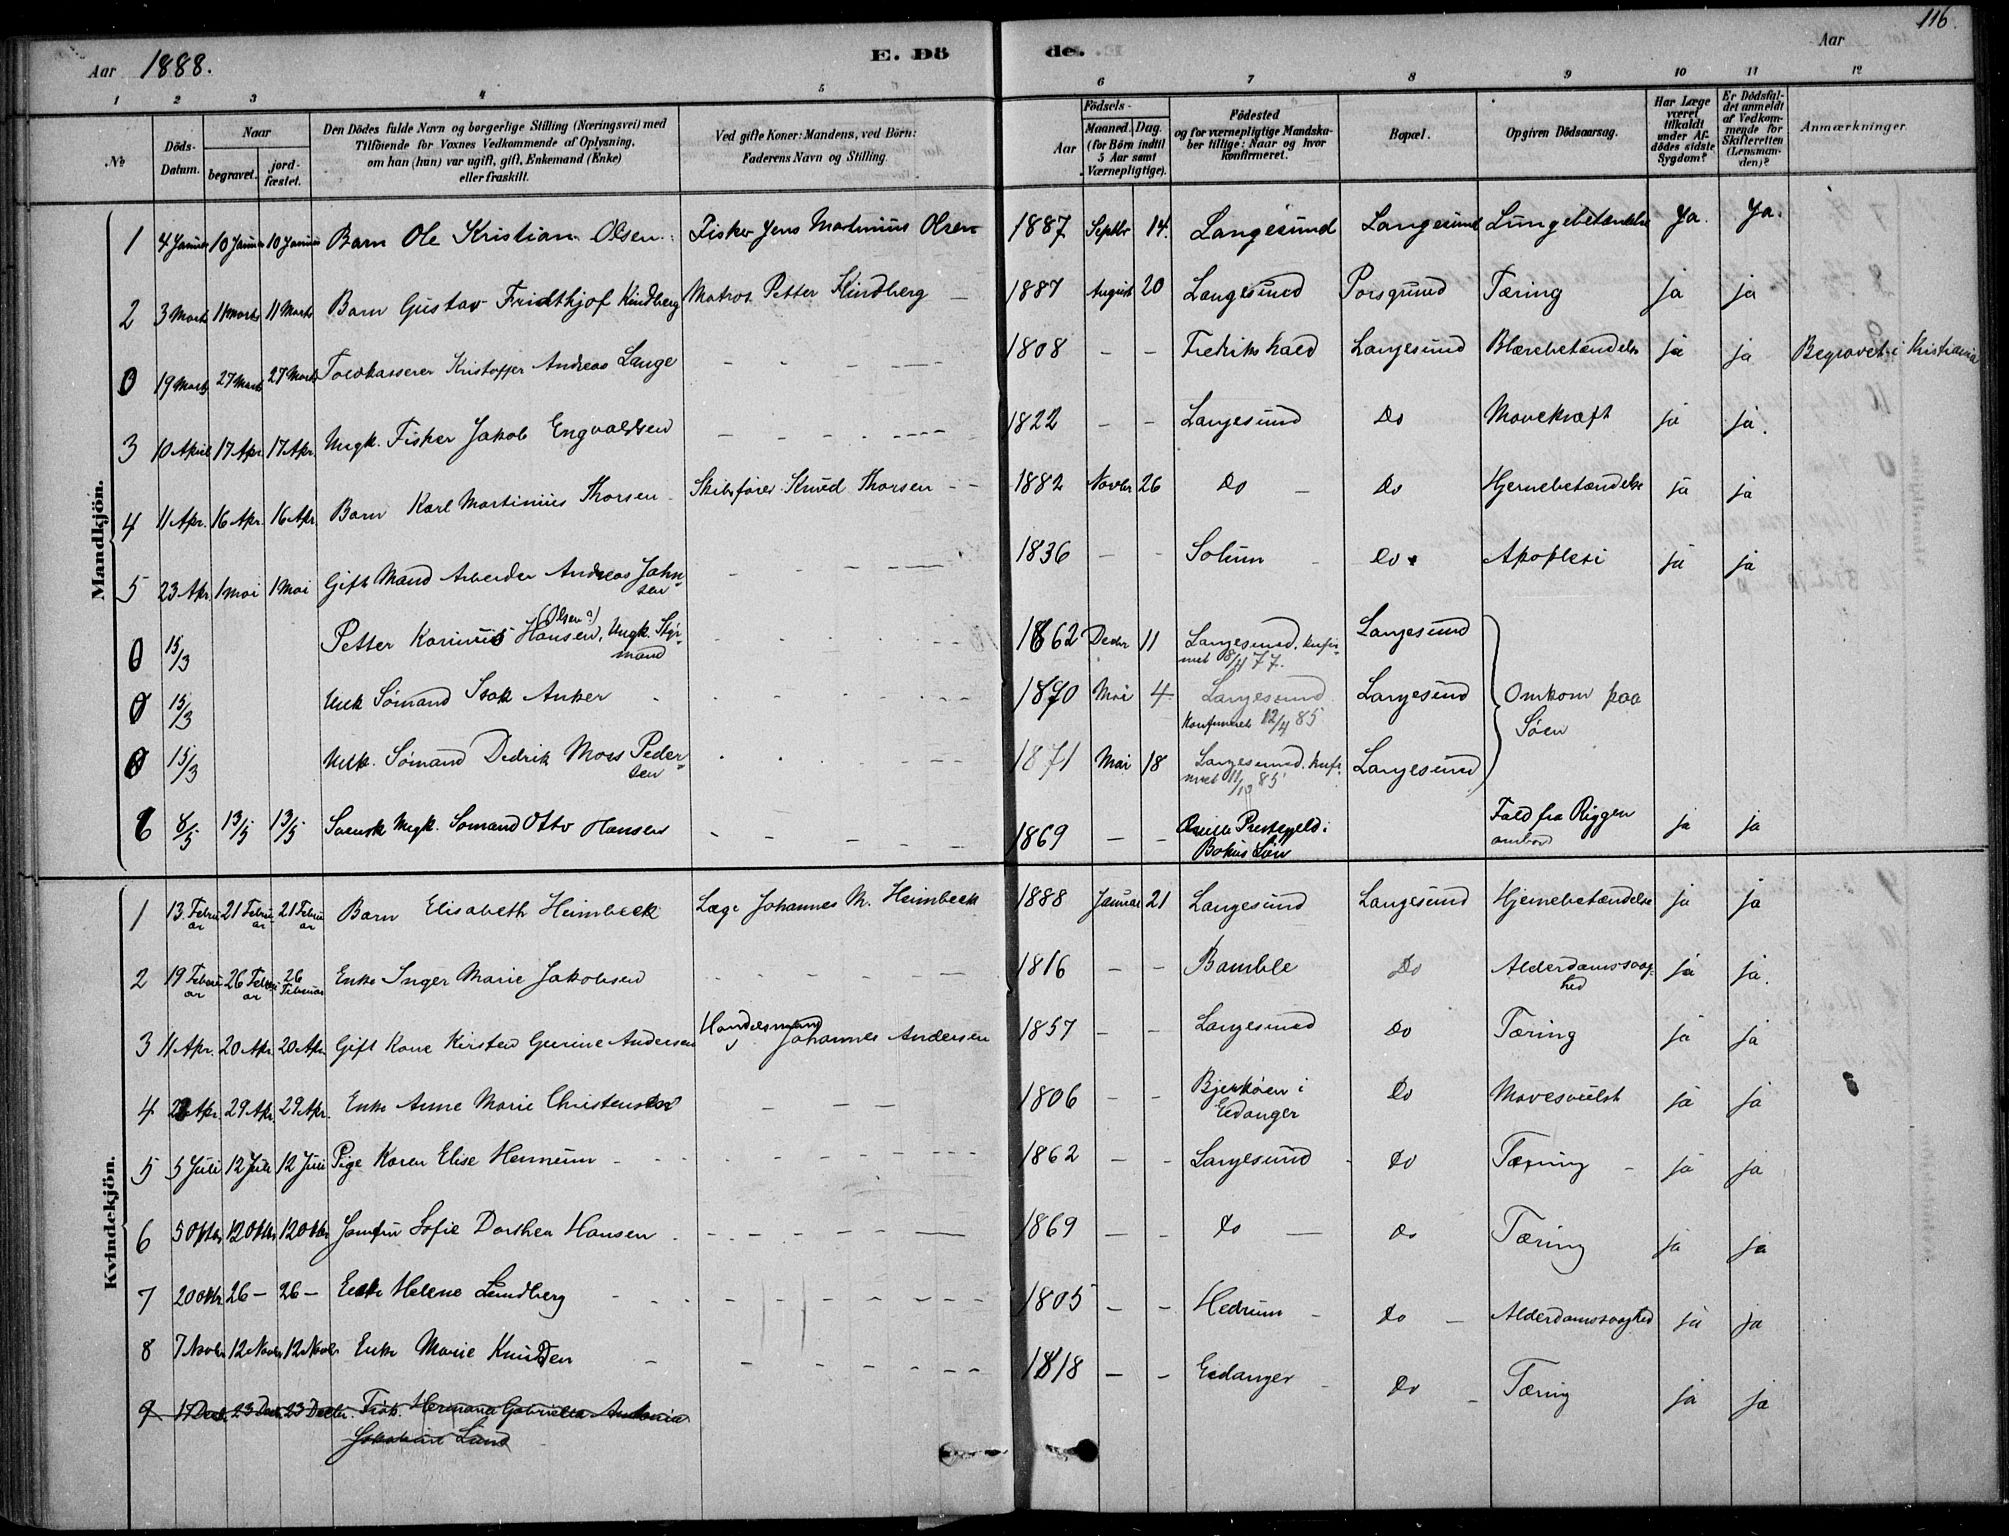 116.
Aar 1888. E. Dö de. Aar
1 2 3 4 5 6 7 8 9 10 11 12
No
Döds-Datum.
Naar
begravet.
jord-fæstet.
Den Dödes fulde Navn og borgerlige Stilling (Næringsvei) med
Tilföiende for Voxnes Vedkommende af Oplysning,
om han (hun) var ugift, gift, Enkemand (Enke)
eller fraskilt.
Ved gifte Koner: Mandens, ved Börn:
Faderens Navn og Stilling.
Födsels-
Aar
Maaned. Dag.
(for Börn indtil
5 Aar samt
Værnepligtige).
Födested
og for værnepligtige Mandska-
ber tillige: Naar og hvor
konfirmeret.
Bopæl.
Opgiven Dödsaarsag.
Har Læge
været
tilkaldt
under Af-
dödes sidste
Sygdom?
Er Dödsfal-
det anmeldt
af Vedkom-
mende for
Skifteretten
(Lensman-
den)?
Anmærkninger.
Mandkjön.
1 4 Januar 10 Januar 10 Januar Barn Ole Kristian Olsen Fisker Jens Martinius Olsen 1887 Septbr 14. Langesund Langesund Lungebetændelse Ja. Ja.
2 3 Marts 11 Marts 11 Marts Barn Gustav Fridthjof Kindberg Matros Petter Kindberg 1887 August 20 Langesund Porsgrund Tæring ja ja
0 19 Marts 27 Marts 27 Marts Toldkasserer Kristoffer Andreas Lange - - 1808 - - Fredrikshald Langesund Blærebetændelse ja ja Begravet i Kristiania
3 10 April 17 Apr. 17 Apr. Ungk. Fisker Jakob Engvaldsen - - 1822 - - Langesund Do Mavekræft ja ja.
4 11 Apr. 16 Apr. 16 Apr. Barn Karl Martinius Thorsen Skibsfører Knud Thorsen 1882 Novbr 26 Do Do Hjernebetændelse ja ja
5 23 Apr. 1 Mai 1 Mai Gift Mand Arbeider Andreas Jahn-
sen - - 1836 - - Solum Do. Apoplexi ja ja
0 15/3 Petter Karinius Hansen, (Olsen?) Ungk. Styr-
mand 1862 Decbr 11 Langesund. Konfir-
meret 8/4 77. Langesund
0 15/3 Unk Sømand Isak Anker 1870 Mai 4 Langesund
Konfirmeret 12/4 85 Langesund Omkom paa
Søen
0 15/3 Unk. Sømand Dedrik Moss Peder-
sen 1871 Mai 18 Langesund. Konfir-
meret 11/10 85 Langesund
6 8/5 13/5 13/5 Svensk Ungk. Sømand Otto Hansen - - 1869 - - Prestegjeld i
Bohus Län Fald fra Riggen
ombord ja ja
Kvindekjön.
1 13. Febru
ar 21 Febru
ar 21 Febru
ar Barn Elisabeth Heimbeck Læge Johannes M. Heimbeck 1888 Januar 21 Langesund Langesund Hjernebetændelse ja ja
2 19 Febru
ar 26 Febru
ar 26
Februar Enke Inger Marie Jakobsen 1816 - - Bamble Do Alderdomssvag-
hed ja ja.
3 11 Apr. 20 Apr. 20 Apr. Gift Kone Kirsten Gurine Andersen Handelsmand Johannes Andersen 1857 - - Langesund Do Tæring ja ja
4 Apr. 29 Apr. 29 Apr. Enke Anne Marie Christensen 1806 - - Bjerkøen i
Eidanger Do Mavesvulst ja ja
5 5 Juli 12 Juli 12 Juli Pige Karen Elise Hennum 1862 - - Langesund Do Tæring ja ja
6 5 Oktbr 12 Oktbr 12 Oktbr Jomfru Sofie Dorthea Hansen 1869 - - do Do Tæring ja ja
7 20 Oktbr 26 - 26 - Enke Helene Lundberg 1805 - - Hedrum Do Alderdomssvaghed ja ja
8 7 Novbr 12 Novbr 12 Novbr Enke Marie Knudsen 1818 - - Eidanger Do Tæring ja ja
9 17 Decbr. 23 Decbr 23 Decbr. Frøk. Hermana Gabriella Antonia
Lund